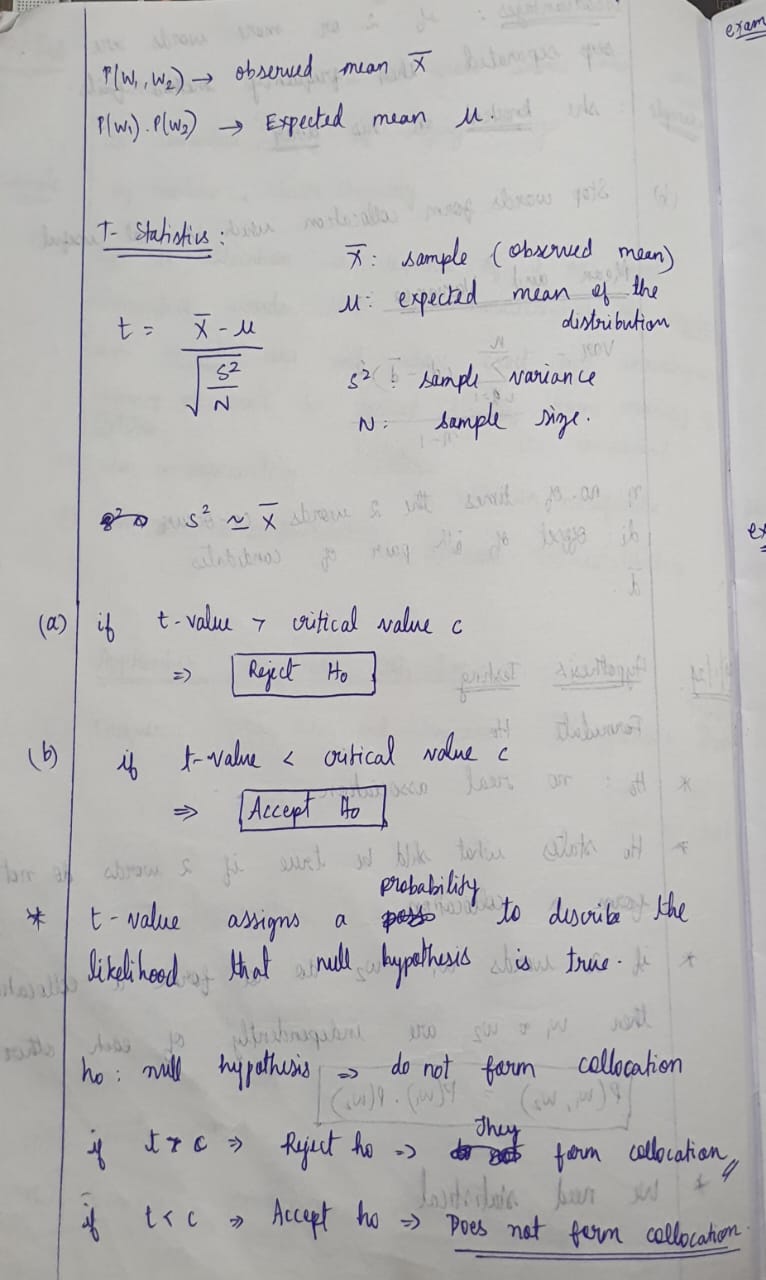 P(W₁, W₂) → observed mean x̄
P(W₁) . P(W₂) → Expected mean μ.
T- Statistics :
x̄ : sample (observed mean)
μ : expected mean of the distribution
t = (x̄ - μ) / √(s²/N)
s² : sample variance
N : sample size.
s² ≃ x̄
(a) if t-value > critical value c
⇒ Reject H₀
(b) if t-value < critical value c
⇒ Accept H₀
* t-value assigns a probability to describe the
likelihood that null hypothesis is true.
h₀ : null hypothesis ⇒ do not form collocation
if t > c ⇒ Reject h₀ ⇒ They form collocation
if t < c ⇒ Accept h₀ ⇒ Does not form collocation.
exam
ex